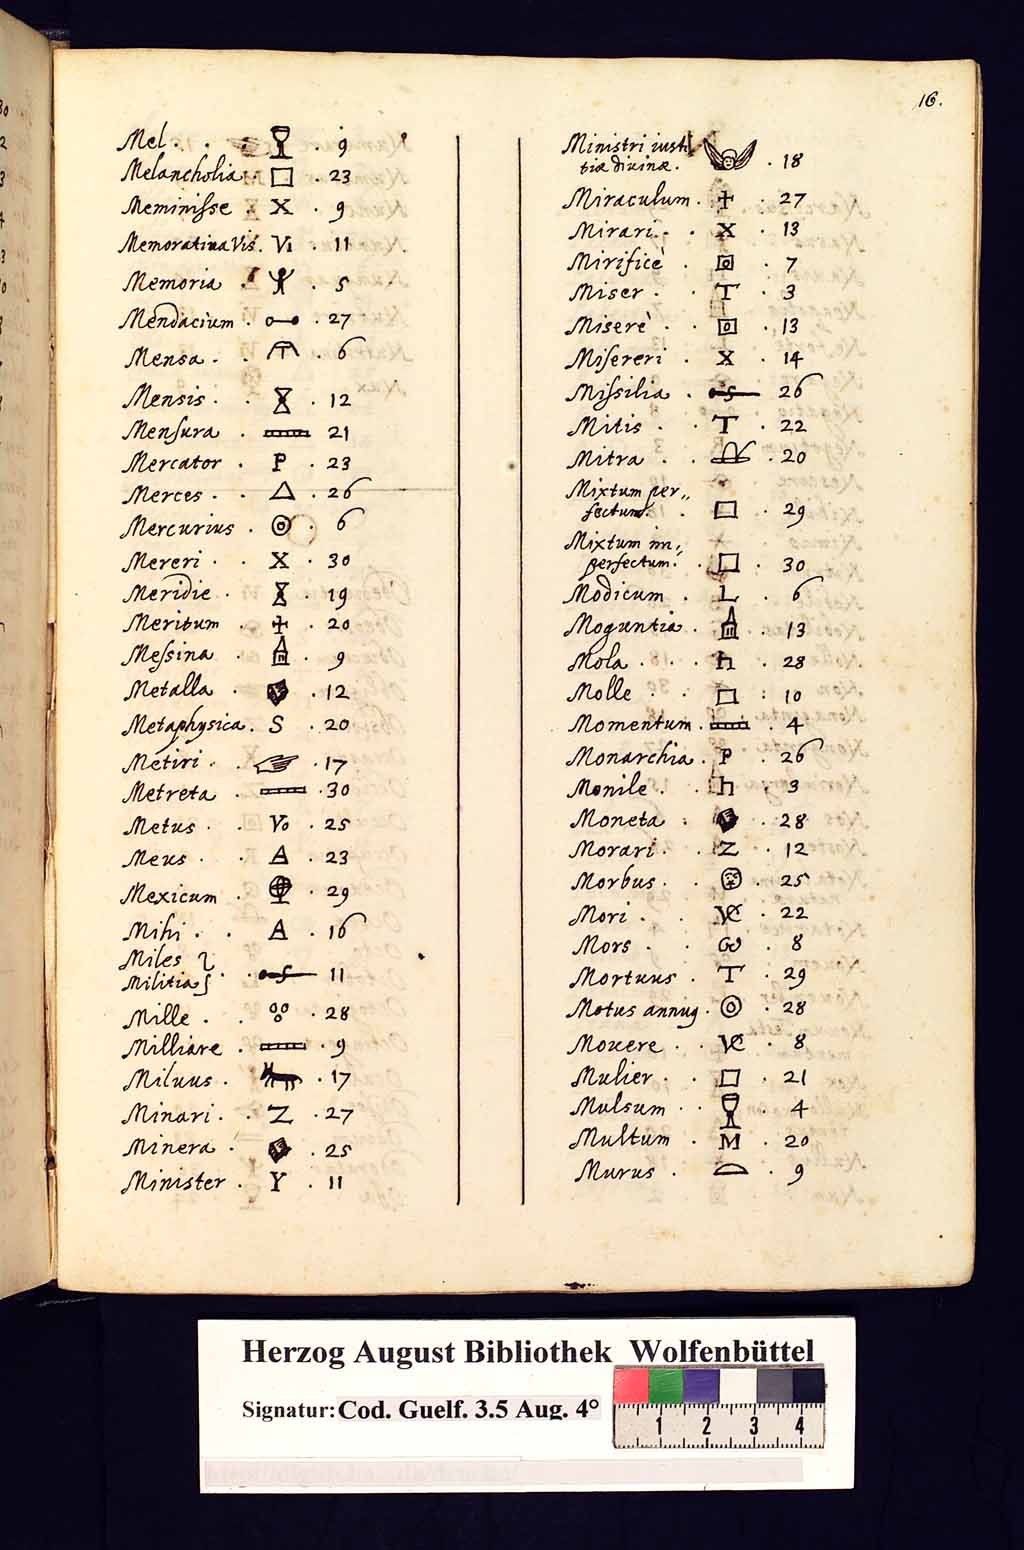 16.
Mel . . 9
Melancholia . 23
Meminisse . X . 9
Memorativa Vis . Vi . 11
Memoria . . 5
Mendacium . . 27
Mensa . . 6
Mensis . . 12
Mensura . . 21
Mercator . P . 23
Merces . . 26
Mercurius . . 6
Mereri . X . 30
Meridie . . 19
Meritum . . 20
Messina . . 9
Metalla . . 12
Metaphysica . S . 20
Metiri . . 17
Metreta . . 30
Metus . Vo . 25
Meus . A . 23
Mexicum . . 29
Mihi . A . 16
Miles
Militia . . 11
Mille . . 28
Milliare . . 9
Miluus . . 17
Minari . Z . 27
Minera . . 25
Minister . Y . 11
Ministri iusti
tiæ divinæ . . 18
Miraculum . . 27
Mirari . X . 13
Mirificè . . 7
Miser . T . 3
Miserè . . 13
Misereri . X . 14
Missilia . . 26
Mitis . T . 22
Mitra . . 20
Mixtum per,,
fectum . . 29
Mixtum im,,
perfectum . . 30
Modicum . L . 6
Moguntia . . 13
Mola . h . 28
Molle . . 10
Momentum . . 4
Monarchia . P . 26
Monile . h . 3
Moneta . . 28
Morari . Z . 12
Morbus . . 25
Mori . . 22
Mors . . 8
Mortuus . T . 29
Motus annuq . . 28
Mouere . . 8
Mulier . . 21
Mulsum . . 4
Multum . M . 20
Murus . . 9
Herzog August Bibliothek Wolfenbüttel
Signatur: Cod. Guelf. 3.5 Aug. 4°
1 2 3 4